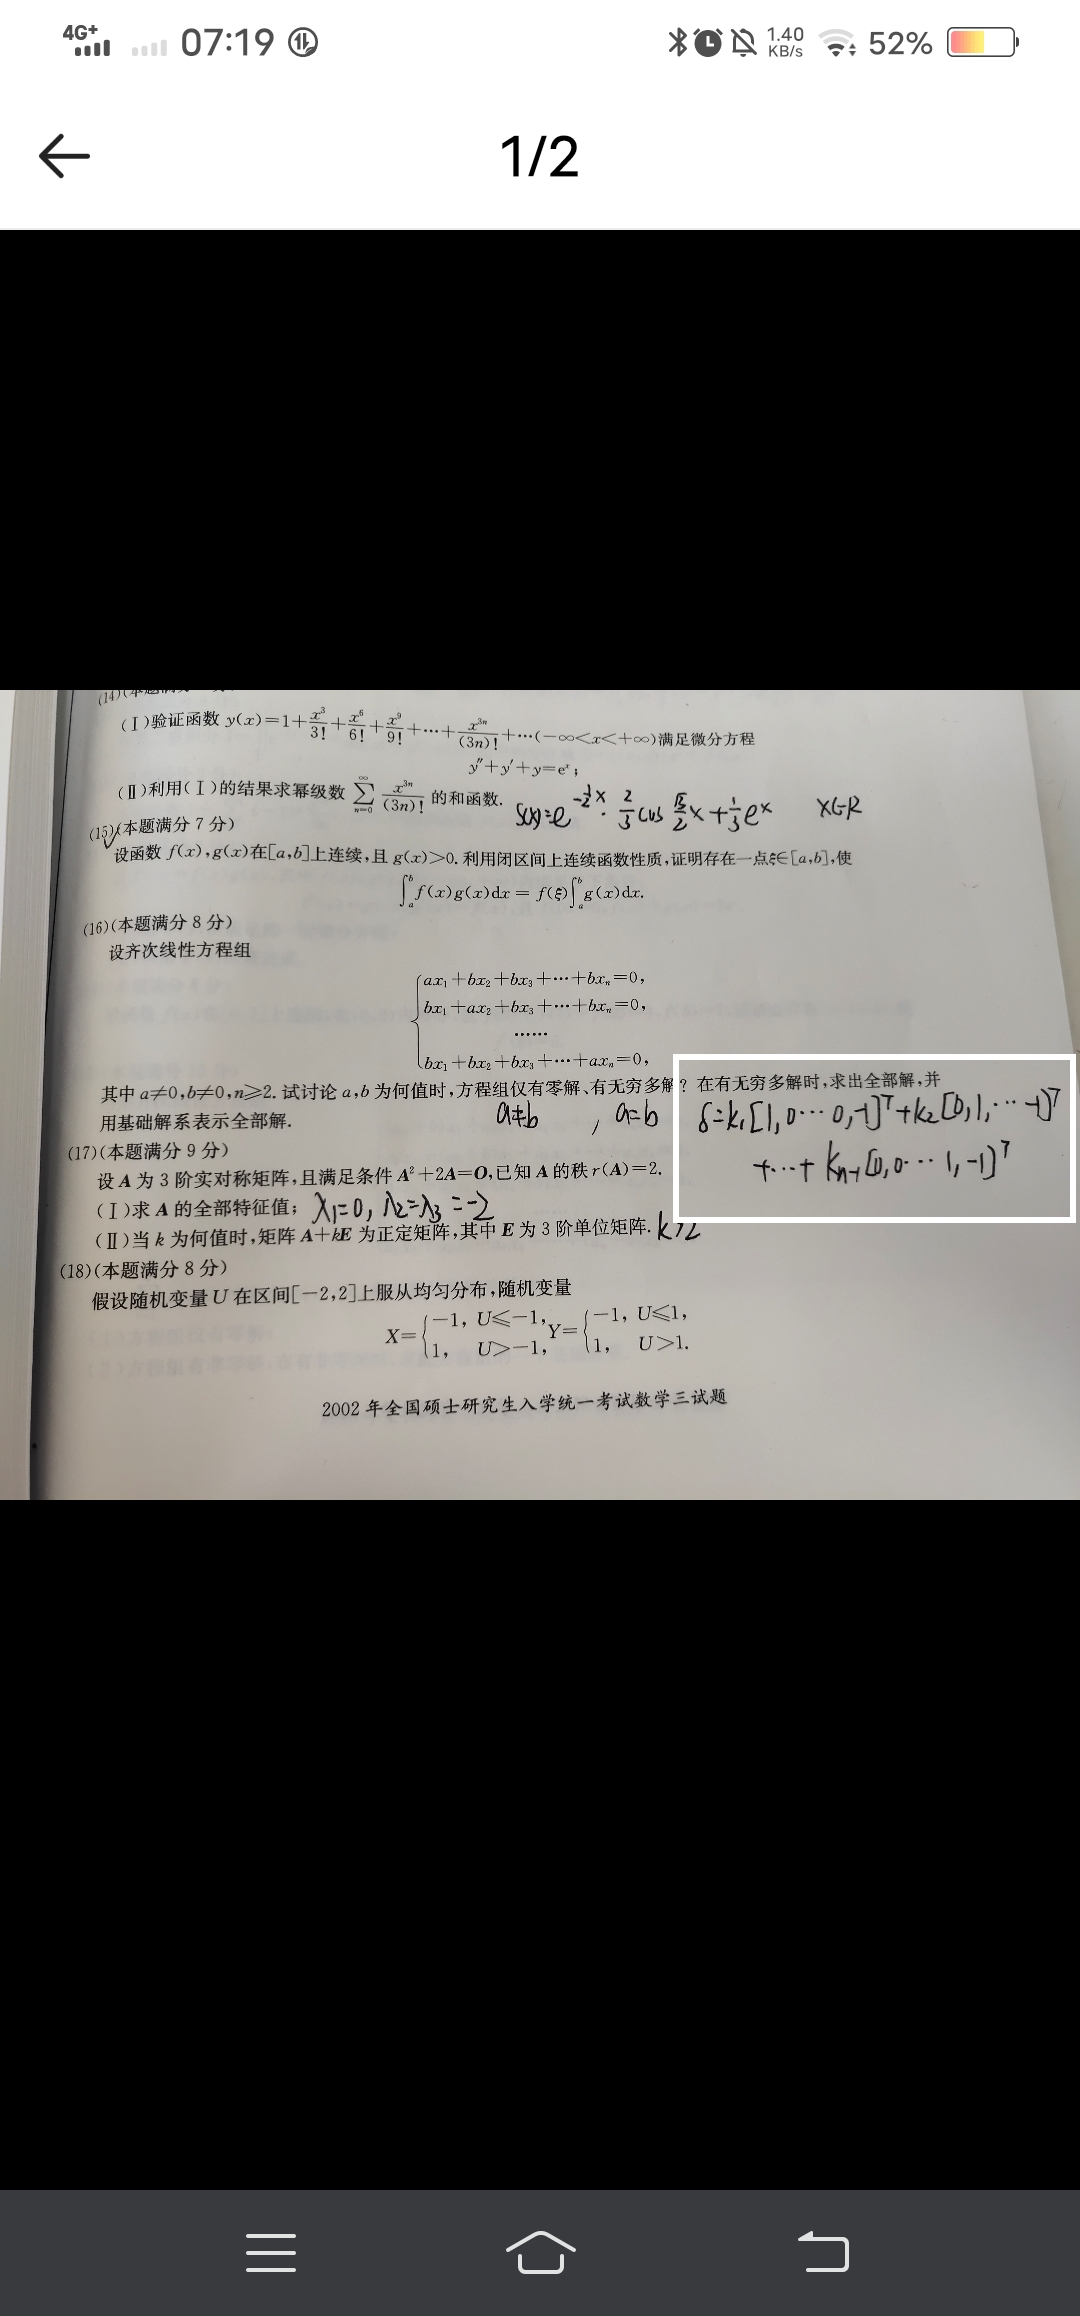 4G+ 07:19 1.40 KB/s 52%
1/2
(Ⅰ)验证函数 y(x)=1+x³/3!+x⁶/6!+x⁹/9!+⋯+x³ⁿ/(3n)!+⋯(-∞<x<+∞)满足微分方程
y″+y′+y=eˣ;
(Ⅱ)利用(Ⅰ)的结果求幂级数 ∑n=0∞ x³ⁿ/(3n)! 的和函数. S(x)=e^(-1/2 x)·2/3 cos √3/2 x+1/3 eˣ x∈R
(15)(本题满分 7 分)
设函数 f(x),g(x)在[a,b]上连续,且 g(x)>0. 利用闭区间上连续函数性质,证明存在一点ξ∈[a,b],使
∫ₐᵇ f(x)g(x)dx = f(ξ)∫ₐᵇ g(x)dx.
(16)(本题满分 8 分)
设齐次线性方程组
ax₁+bx₂+bx₃+⋯+bxₙ=0,
bx₁+ax₂+bx₃+⋯+bxₙ=0,
⋯⋯
bx₁+bx₂+bx₃+⋯+axₙ=0,
其中 a≠0,b≠0,n≥2. 试讨论 a,b 为何值时,方程组仅有零解、有无穷多解? 在有无穷多解时,求出全部解,并
用基础解系表示全部解. a≠b , a=b δ=k₁[1,0⋯0,-1]ᵀ+k₂[0,1,⋯-1]ᵀ
+⋯+kₙ₋₁[0,0⋯1,-1]ᵀ
(17)(本题满分 9 分)
设 A 为 3 阶实对称矩阵,且满足条件 A²+2A=O,已知 A 的秩 r(A)=2.
(Ⅰ)求 A 的全部特征值; λ₁=0, λ₂=λ₃=-2
(Ⅱ)当 k 为何值时,矩阵 A+kE 为正定矩阵,其中 E 为 3 阶单位矩阵. k>2
(18)(本题满分 8 分)
假设随机变量 U 在区间[-2,2]上服从均匀分布,随机变量
X={-1, U≤-1, Y={-1, U≤1,
1, U>-1, 1, U>1.
2002 年全国硕士研究生入学统一考试数学三试题